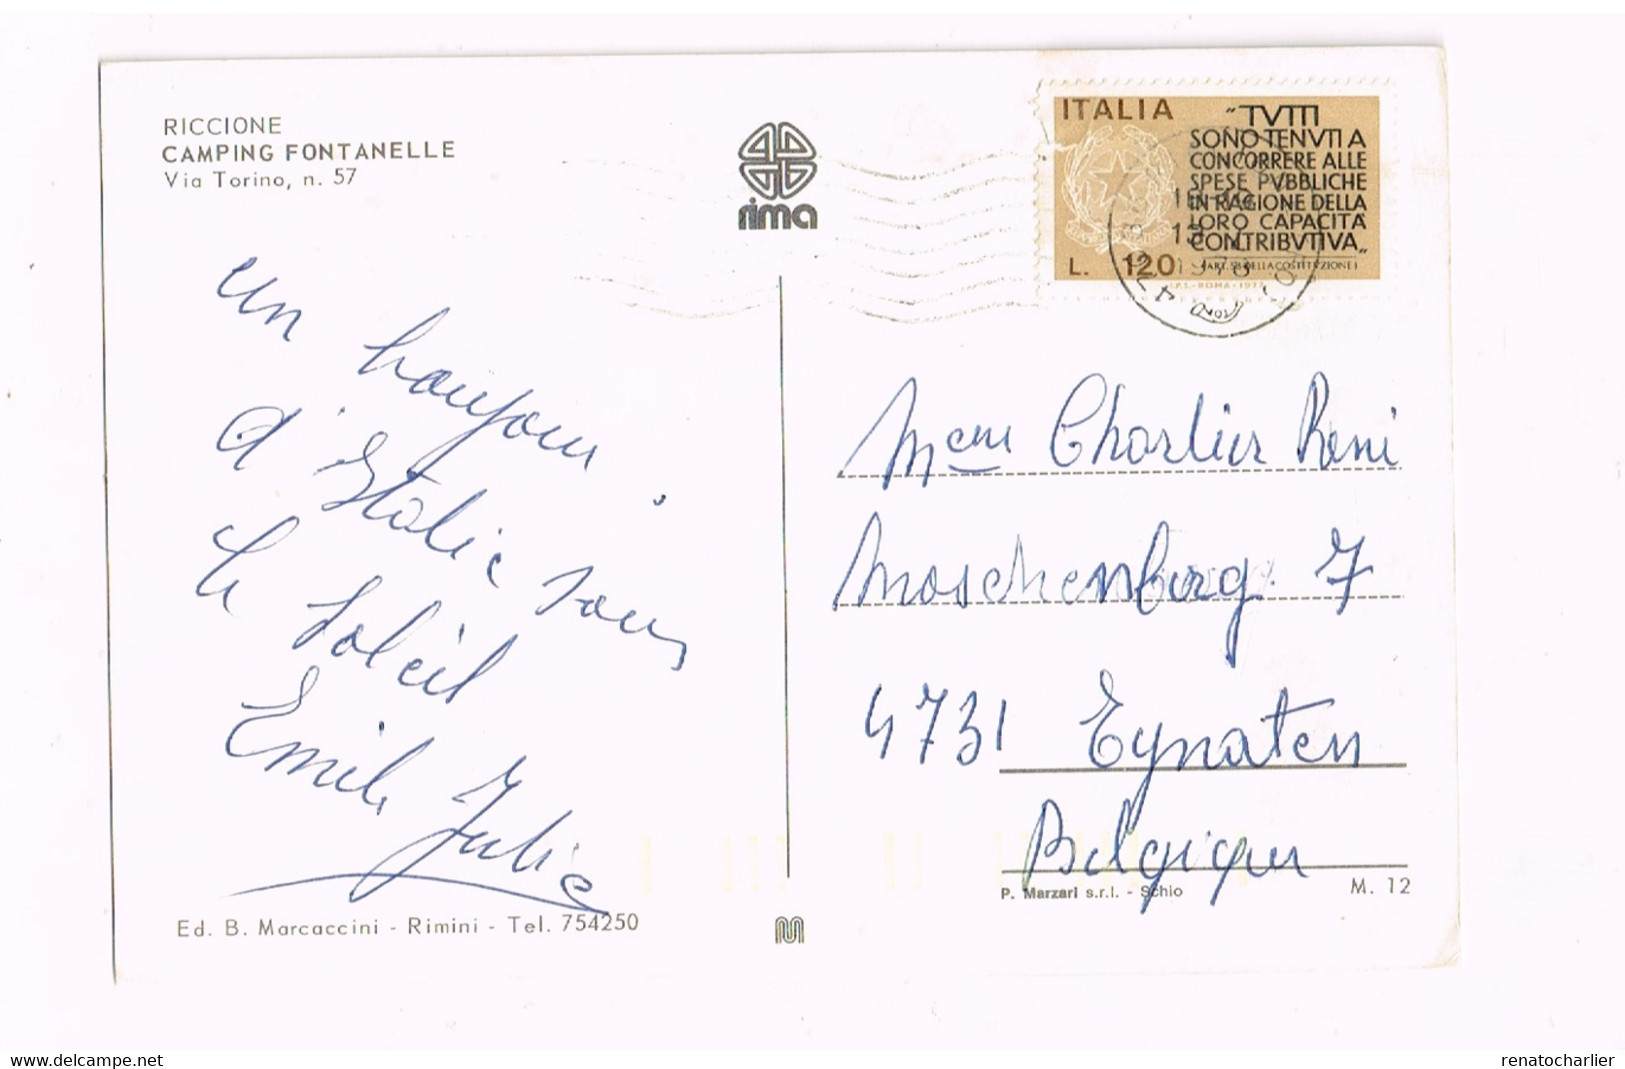 RICCIONE
CAMPING FONTANELLE
Via Torino, n. 57
rima
ITALIA
"TVTTI
SONO TENVTI A
CONCORRERE ALLE
SPESE PVBBLICHE
IN RAGIONE DELLA
LORO CAPACITÀ
CONTRIBVTIVA"
(ART. 53 DELLA COSTITVZIONE)
L. 120
I.P.S.-ROMA-1977
un bonjour
d'Italie sous
le Soleil
Emile Julie
Mem Charlier Reni
Moschenberg 7
4731 Eynaten
Belgique
P. Marzari s.r.l. - Schio
M. 12
Ed. B. Marcaccini - Rimini - Tel. 754250
renatocharlier